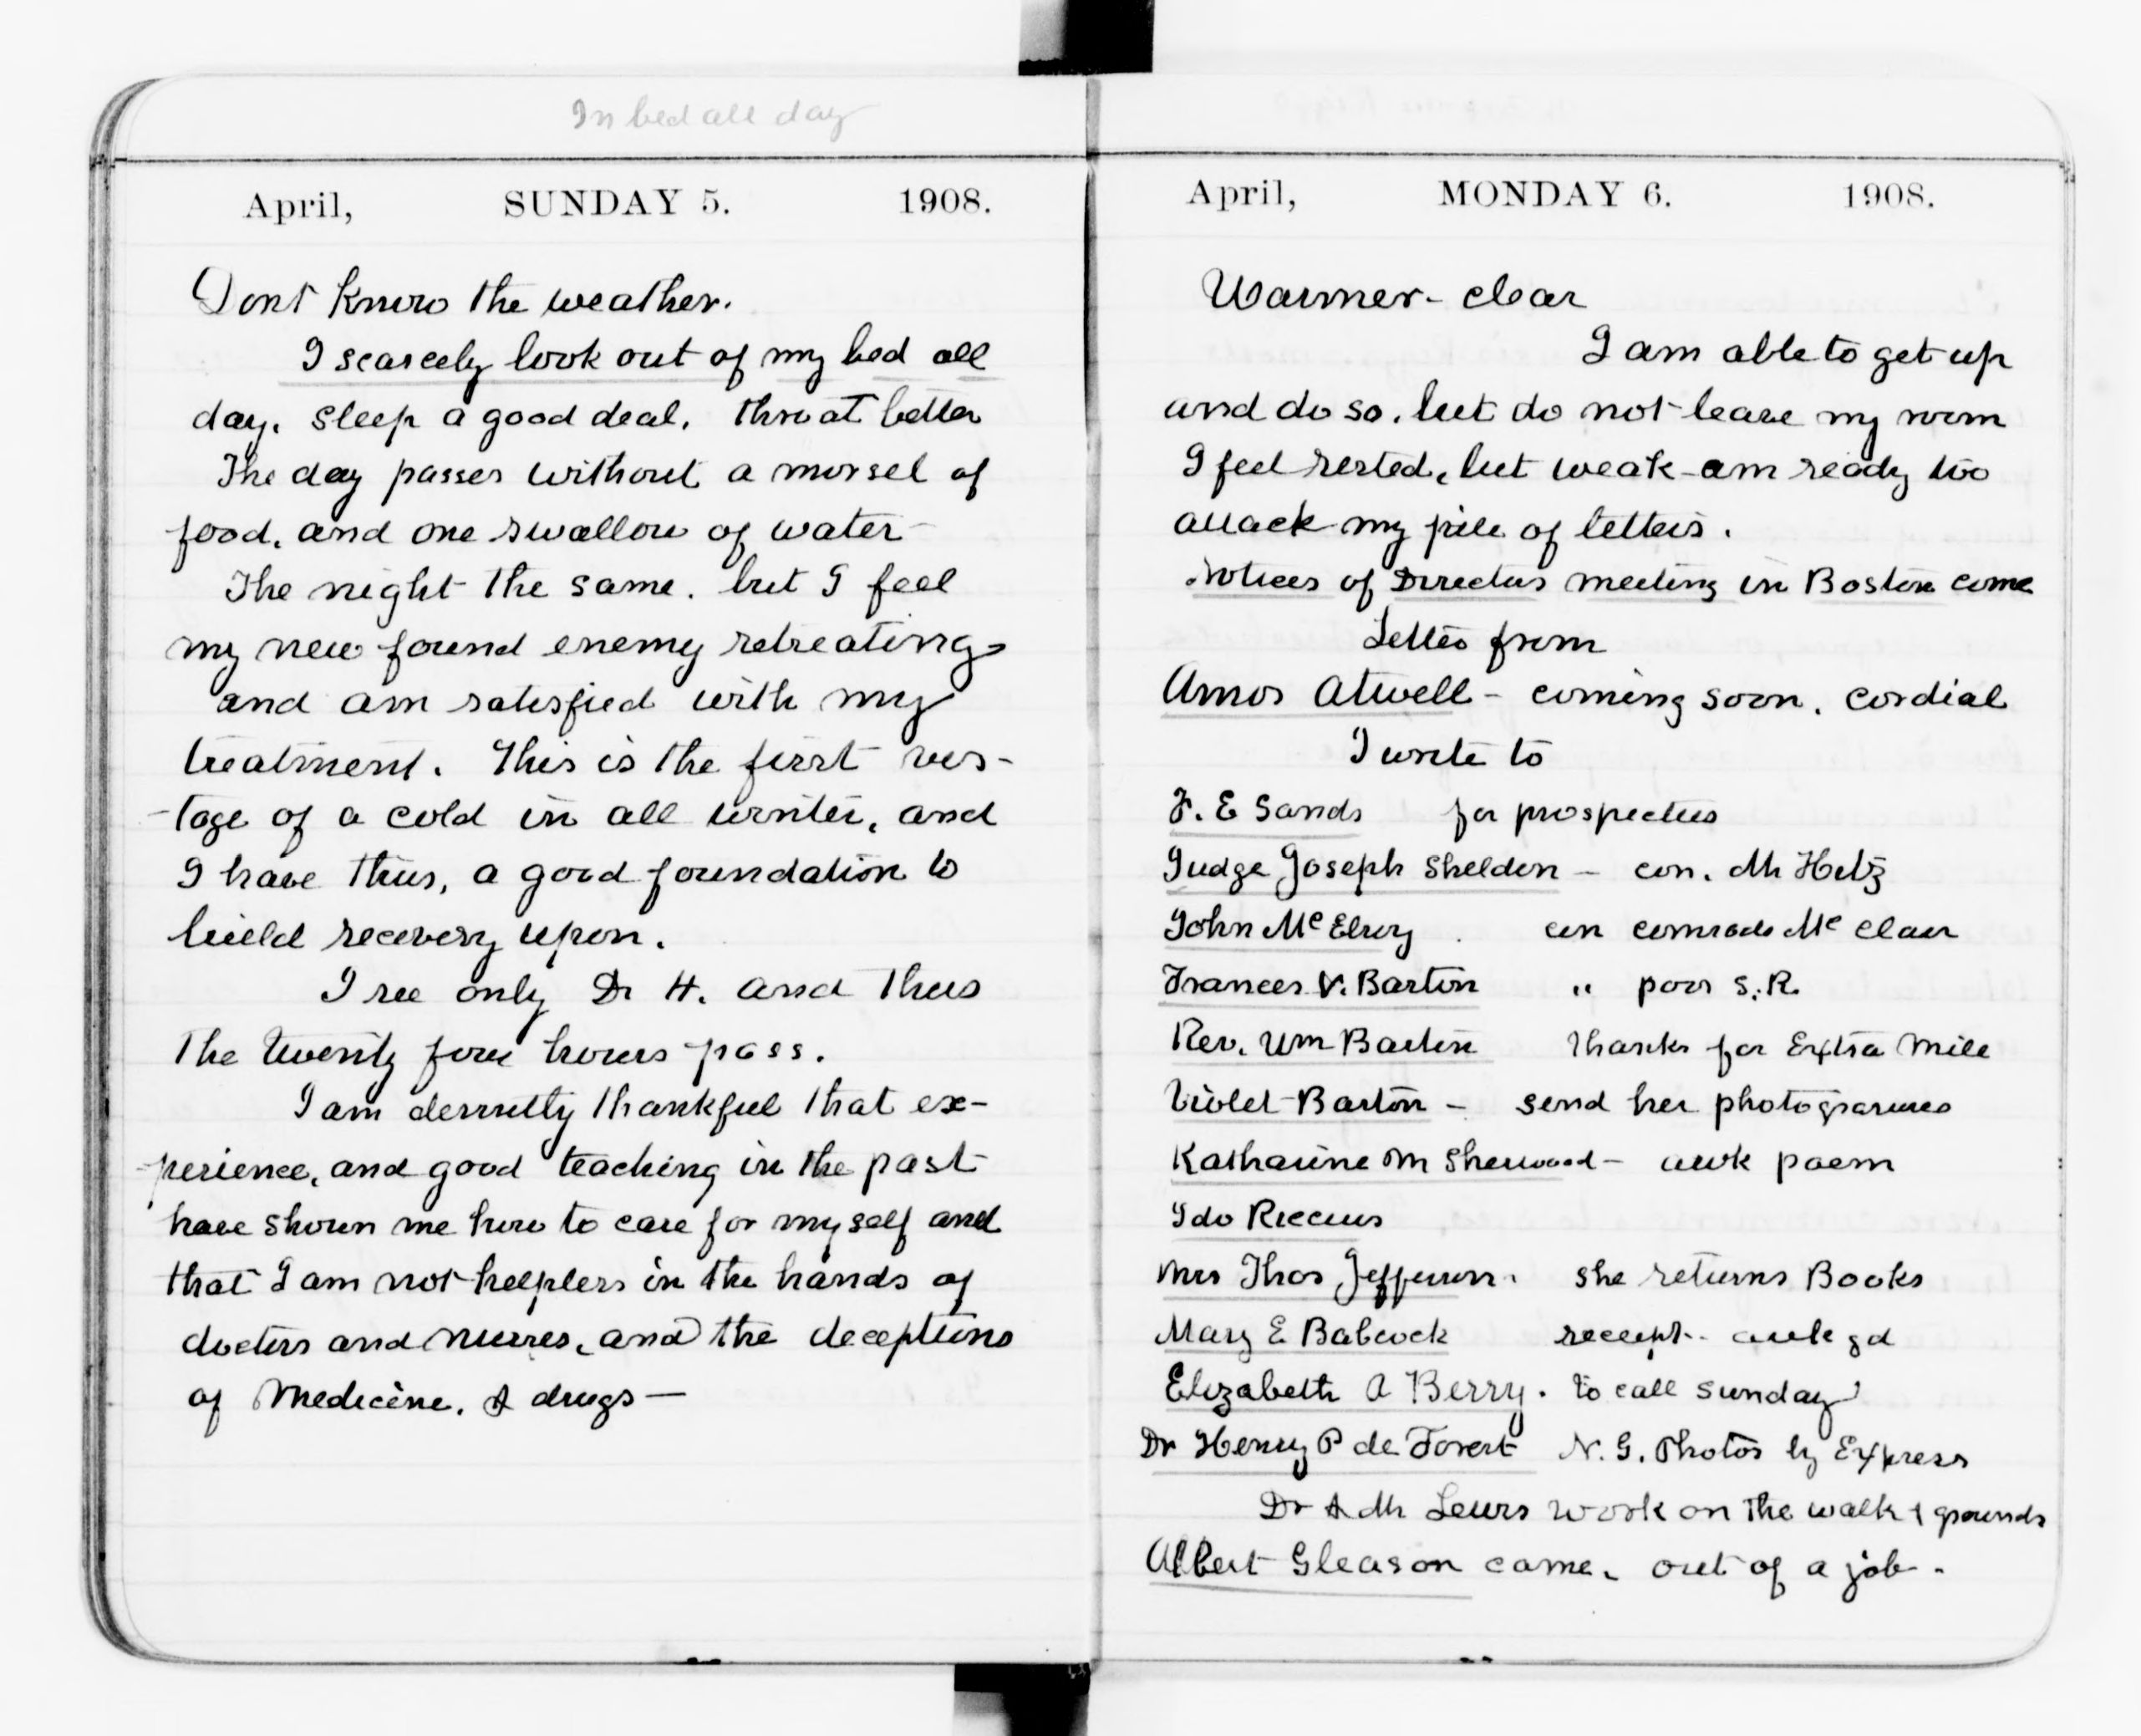 In bed all day
April, SUNDAY 5. 1908.
Dont know the weather.
I scarcely look out of my bed all
day. Sleep a good deal. throat better
The day passes without a morsel of
food. and one swallow of water
The night the same. but I feel
my new found enemy retreating
and am satisfied with my
treatment. This is the first ves-
-tage of a cold in all winter, and
I have thus, a good foundation to
build recovery upon.
I see only Dr H. and thus
the twenty four hours pass.
I am devoutly thankful that ex-
-perience, and good teaching in the past
have shown me how to care for myself and
that I am not helpless in the hands of
doctors and nurses, and the deceptions
of Medicine. & drugs —
April, MONDAY 6. 1908.
Warmer - clear
I am able to get up
and do so. but do not leave my room
I feel rested, but weak - am ready too
attack my pile of letters.
Notices of Directors meeting in Boston come
Letters from
Amos Atwell - coming soon. cordial
I write to
F. E Sands for prospectus
Judge Joseph Sheldon - con. Mr Hitz
John McElroy con comrade Mc Clair
Frances V. Barton " poor S. R.
Rev. Wm Barton thanks for Extra Mile
Violet Barton - send her photogravures
Katharine M Sherwood - awk poem
Ida Riccius
Mrs Thos Jefferson. she returns Books
Mary E Babcock receipt - ackgd
Elizabeth A Berry. to call Sunday
Dr Henry P de Forest N. G. Photos by Express
Dr & Mr Lewis work on the walk & grounds
Albert Gleason came. out of a job -